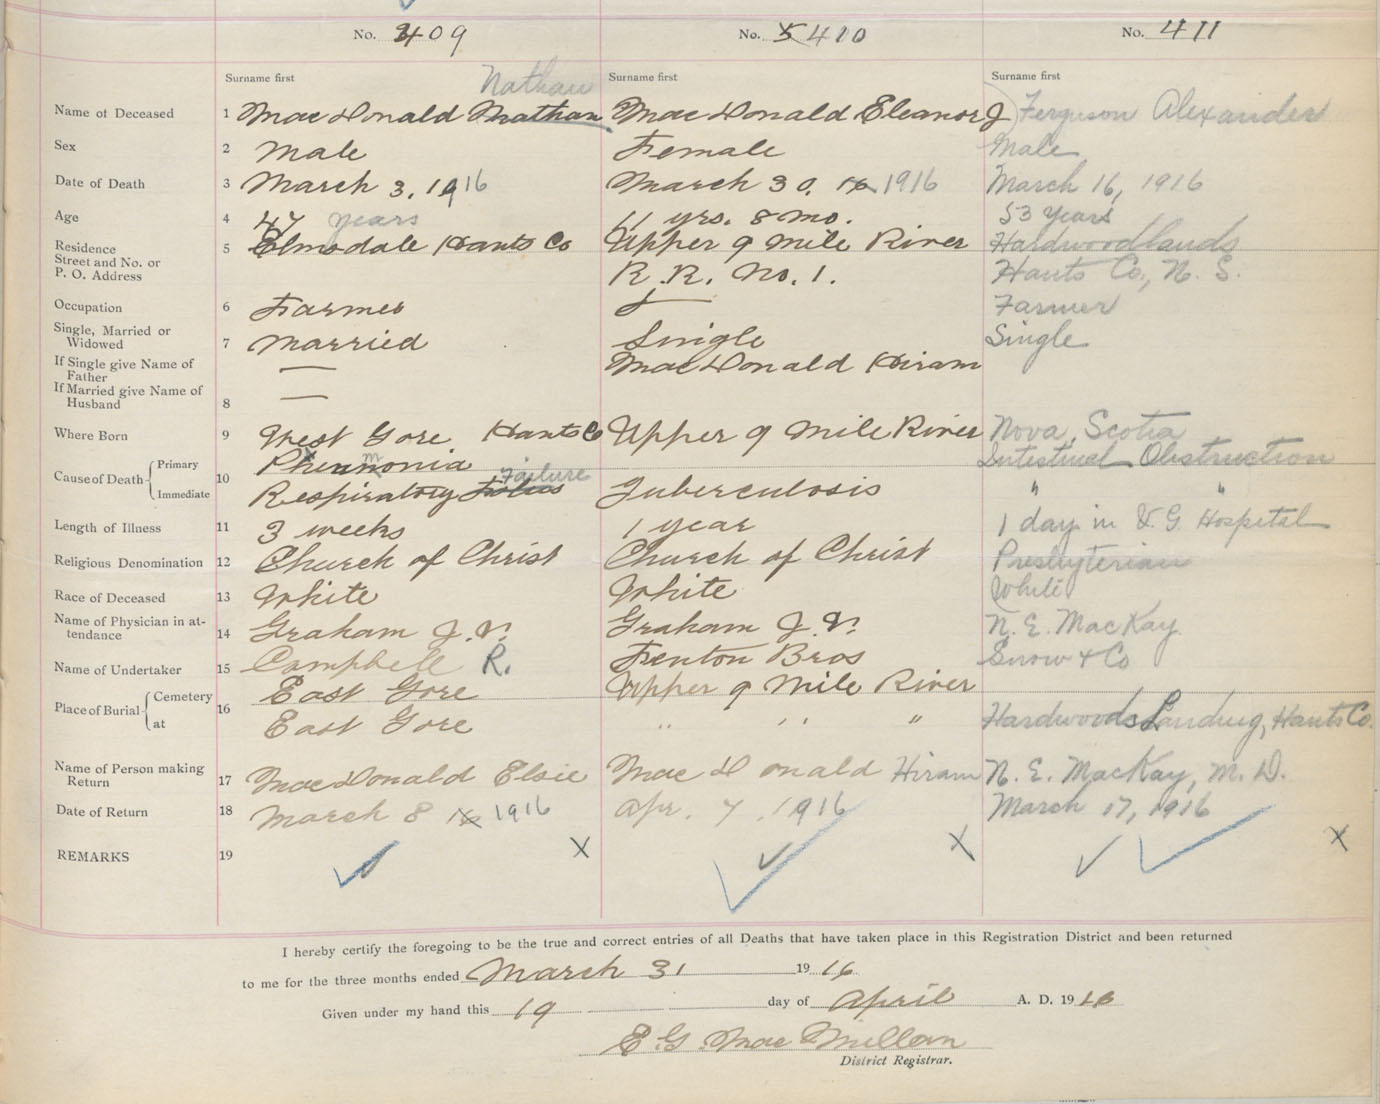 No. 409 No. 5 410 No. 411
Surname first Nathan Surname first Surname first
Name of Deceased 1 MacDonald Nathan MacDonald Eleanor J Ferguson Alexander
Sex 2 Male Female Male
Date of Death 3 March 3, 1916 March 30, 16 1916 March 16, 1916
Age 4 47 years 11 yrs. 8 mo. 53 years
Residence 5 Elmsdale Hants Co Upper 9 Mile River Hardwoodlands
Street and No. or
P. O. Address R. R. No. 1. Hants Co., N. S.
Occupation 6 Farmer Farmer
Single, Married or
Widowed 7 Married Single Single
If Single give Name of
Father — MacDonald Hiram
If Married give Name of
Husband 8 —
Where Born 9 West Gore Hants Co Upper 9 Mile River Nova Scotia
Cause of Death Primary 10 Pneumonia Intestinal Obstruction
Immediate Respiratory Failure Tuberculosis " "
Length of Illness 11 3 weeks 1 year 1 day in V. G. Hospital
Religious Denomination 12 Church of Christ Church of Christ Presbyterian
Race of Deceased 13 White White White
Name of Physician in at-
tendance 14 Graham J. V. Graham J. V. N. E. MacKay
Name of Undertaker 15 Campbell R. Fenton Bros Snow & Co
Place of Burial Cemetery 16 East Gore Upper 9 Mile River
at East Gore " " " Hardwoods Landing, Hants Co.
Name of Person making
Return 17 MacDonald Elsie MacDonald Hiram N. E. MacKay, M. D.
Date of Return 18 March 8 16 1916 Apr. 7, 1916 March 17, 1916
REMARKS 19
I hereby certify the foregoing to be the true and correct entries of all Deaths that have taken place in this Registration District and been returned
to me for the three months ended March 31 1916
Given under my hand this 19 day of April A. D. 1916
E. G. MacMillan
District Registrar.